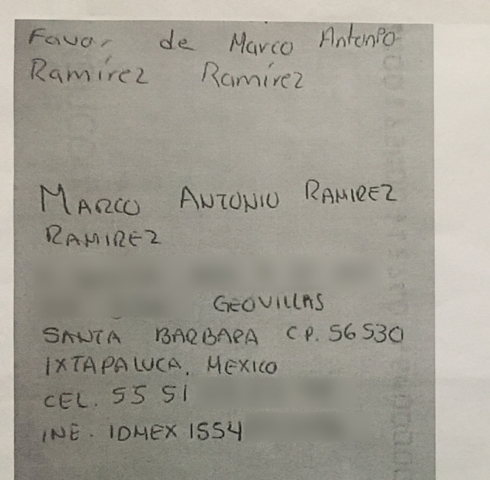 Favor de Marco Antonio
Ramírez Ramírez
MARCO ANTONIO RAMIREZ
RAMIREZ
GEOVILLAS
SANTA BARBARA CP. 56530
IXTAPALUCA, MEXICO
CEL. 55 51
INE. IDMEX 1554